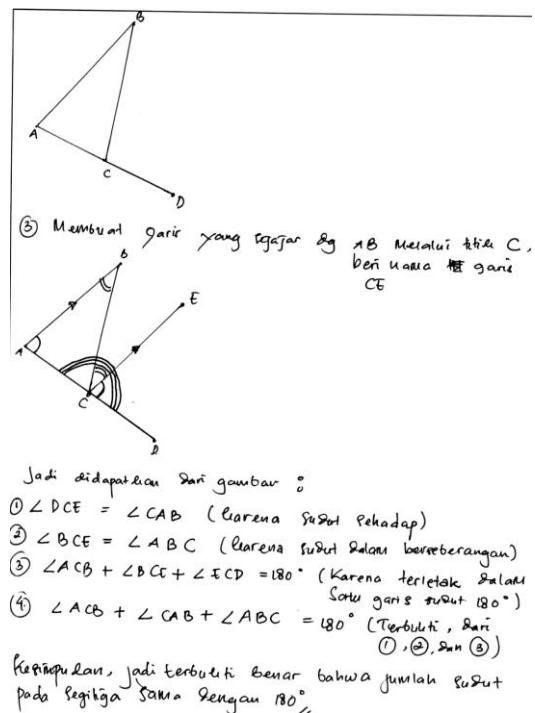 B
A
C
D
③ Membuat garis yang sejajar dg AB melalui titik C,
beri nama garis
CE
B
E
A
C
D
Jadi didapatkan dari gambar :
① ∠DCE = ∠CAB (karena sudut sehadap)
② ∠BCE = ∠ABC (karena sudut dalam berseberangan)
③ ∠ACB + ∠BCE + ∠ECD = 180° (Karena terletak dalam
satu garis sudut 180°)
④ ∠ACB + ∠CAB + ∠ABC = 180° (Terbukti, dari
①, ②, dan ③)
Kesimpulan, jadi terbukti benar bahwa jumlah sudut
pada segitiga sama dengan 180°